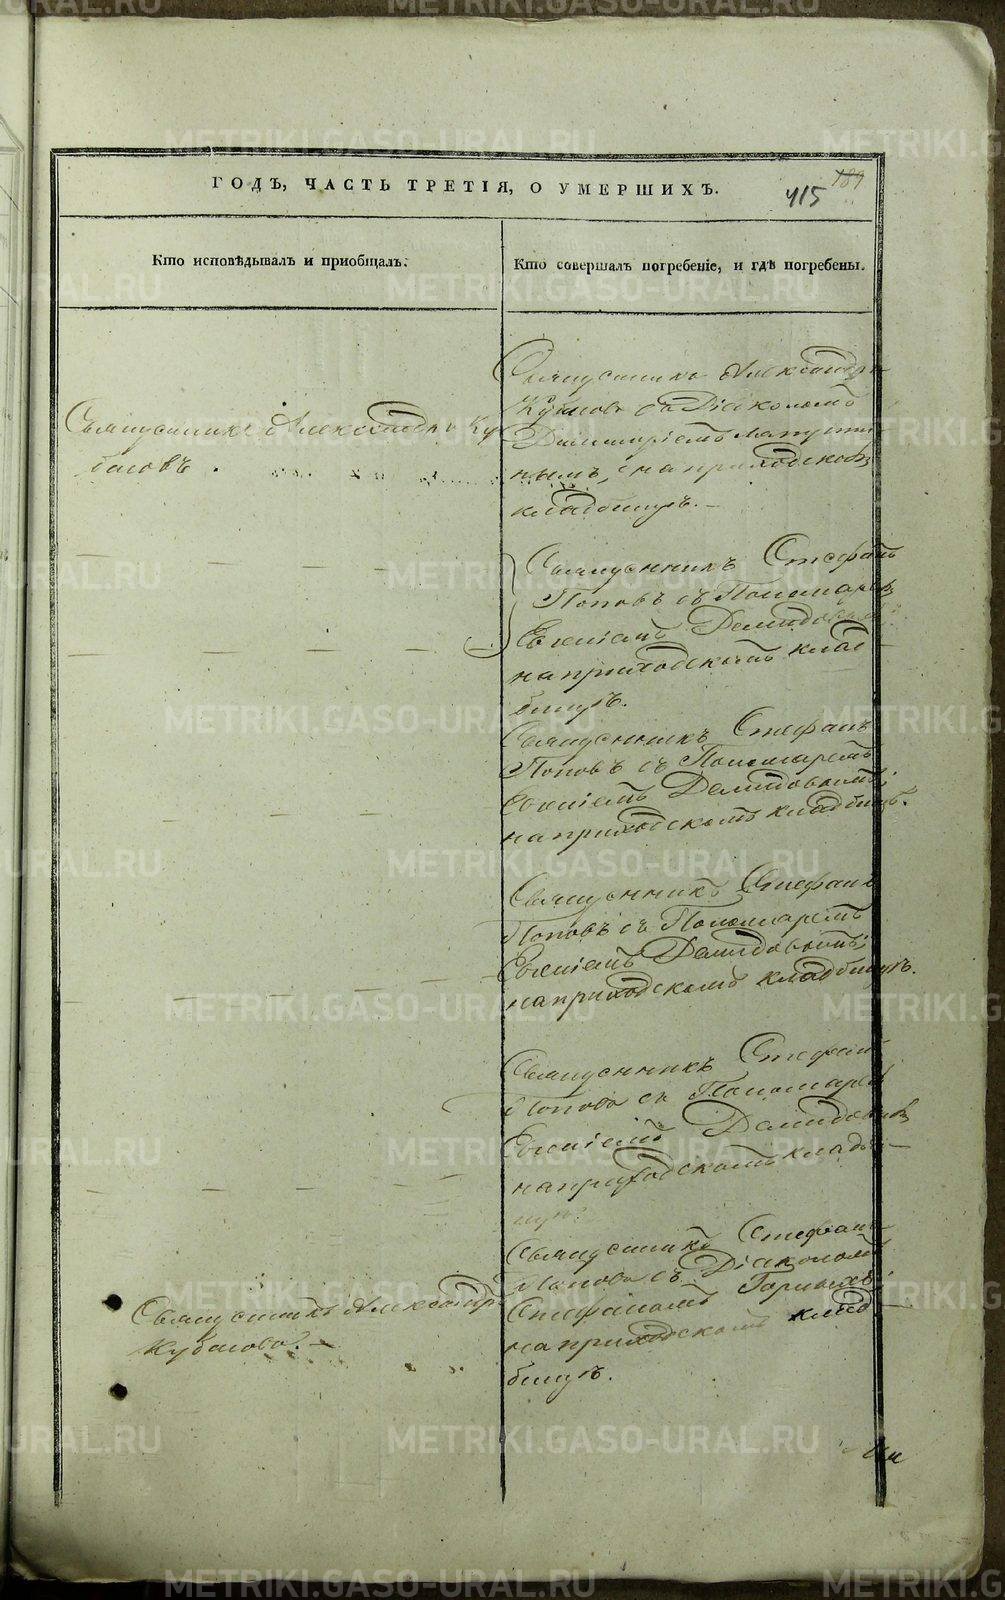 ГОДЪ, ЧАСТЬ ТРЕТІЯ, О УМЕРШИХЪ.
415 189
Кто исповѣдывалъ и приобщалъ.
Кто совершалъ погребеніе, и гдѣ погребены.
Священникъ Александръ Ку
басовъ.
Священникъ Александръ
Кубасовъ съ Діакономъ
Димитріемъ
нымъ, на приходскомъ
кладбищѣ.
Священникъ Стефанъ
Поповъ съ Пономаремъ
Евгеніемъ Демидовымъ
на приходскомъ клад
бищѣ.
Священникъ Стефанъ
Поповъ съ Пономаремъ
Евгеніемъ Демидовымъ
на приходскомъ кладбищѣ.
Священникъ Стефанъ
Поповъ съ Пономаремъ
Евгеніемъ Демидовымъ
на приходскомъ кладбищѣ.
Священникъ Стефанъ
Поповъ съ Пономаремъ
Евгеніемъ Демидовымъ
на приходскомъ кладби
щѣ
Священникъ Александръ
Кубасовъ.
Священникъ Стефанъ
Поповъ съ Діакономъ
Стефаномъ
на приходскомъ клад
бищѣ.
METRIKI.GASO-URAL.RU